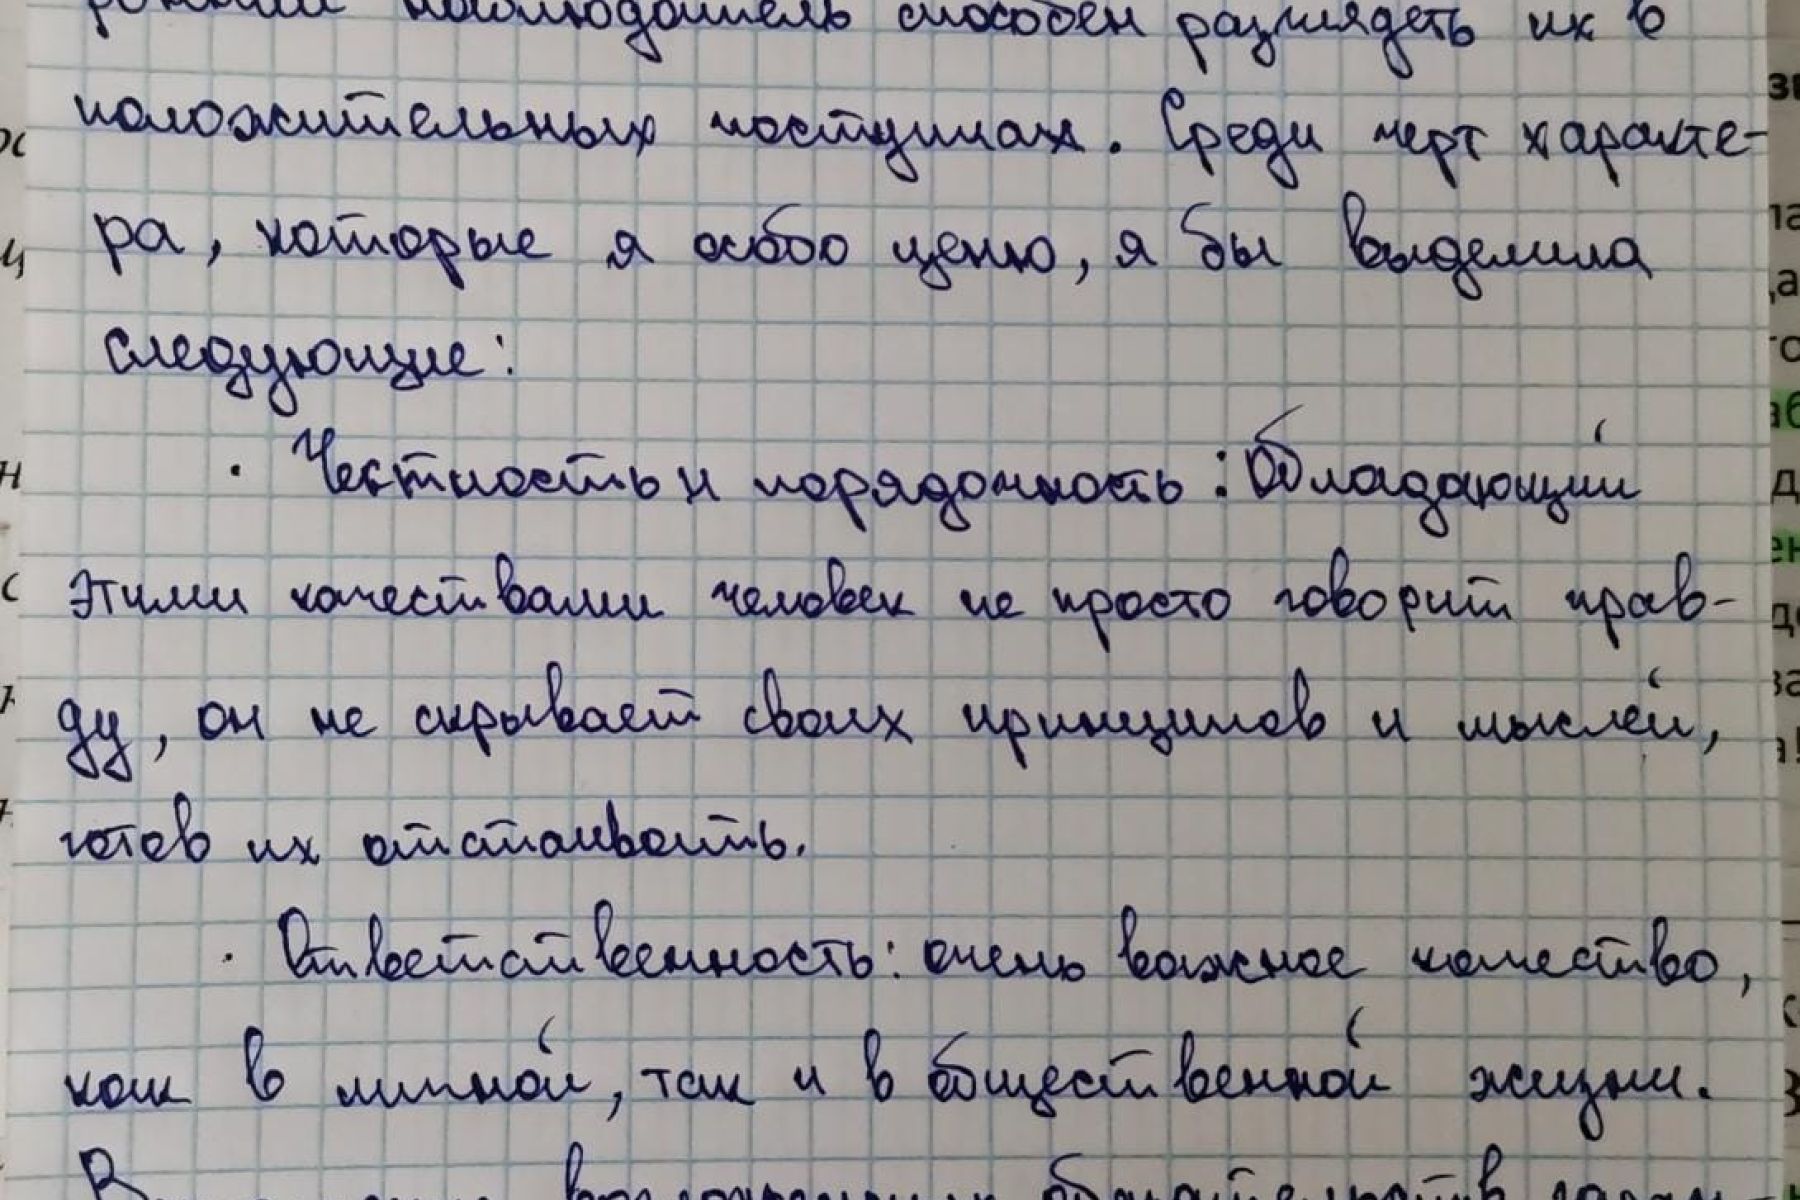 наблюдатель способен разглядеть их в
положительных поступках. Среди черт характе-
ра, которые я особо ценю, я бы выделила
следующие:
· Честность и порядочность: Обладающий
этими качествами человек не просто говорит прав-
ду, он не скрывает своих принципов и мыслей,
готов их отстаивать.
· Ответственность: очень важное качество,
как в личной, так и в общественной жизни.